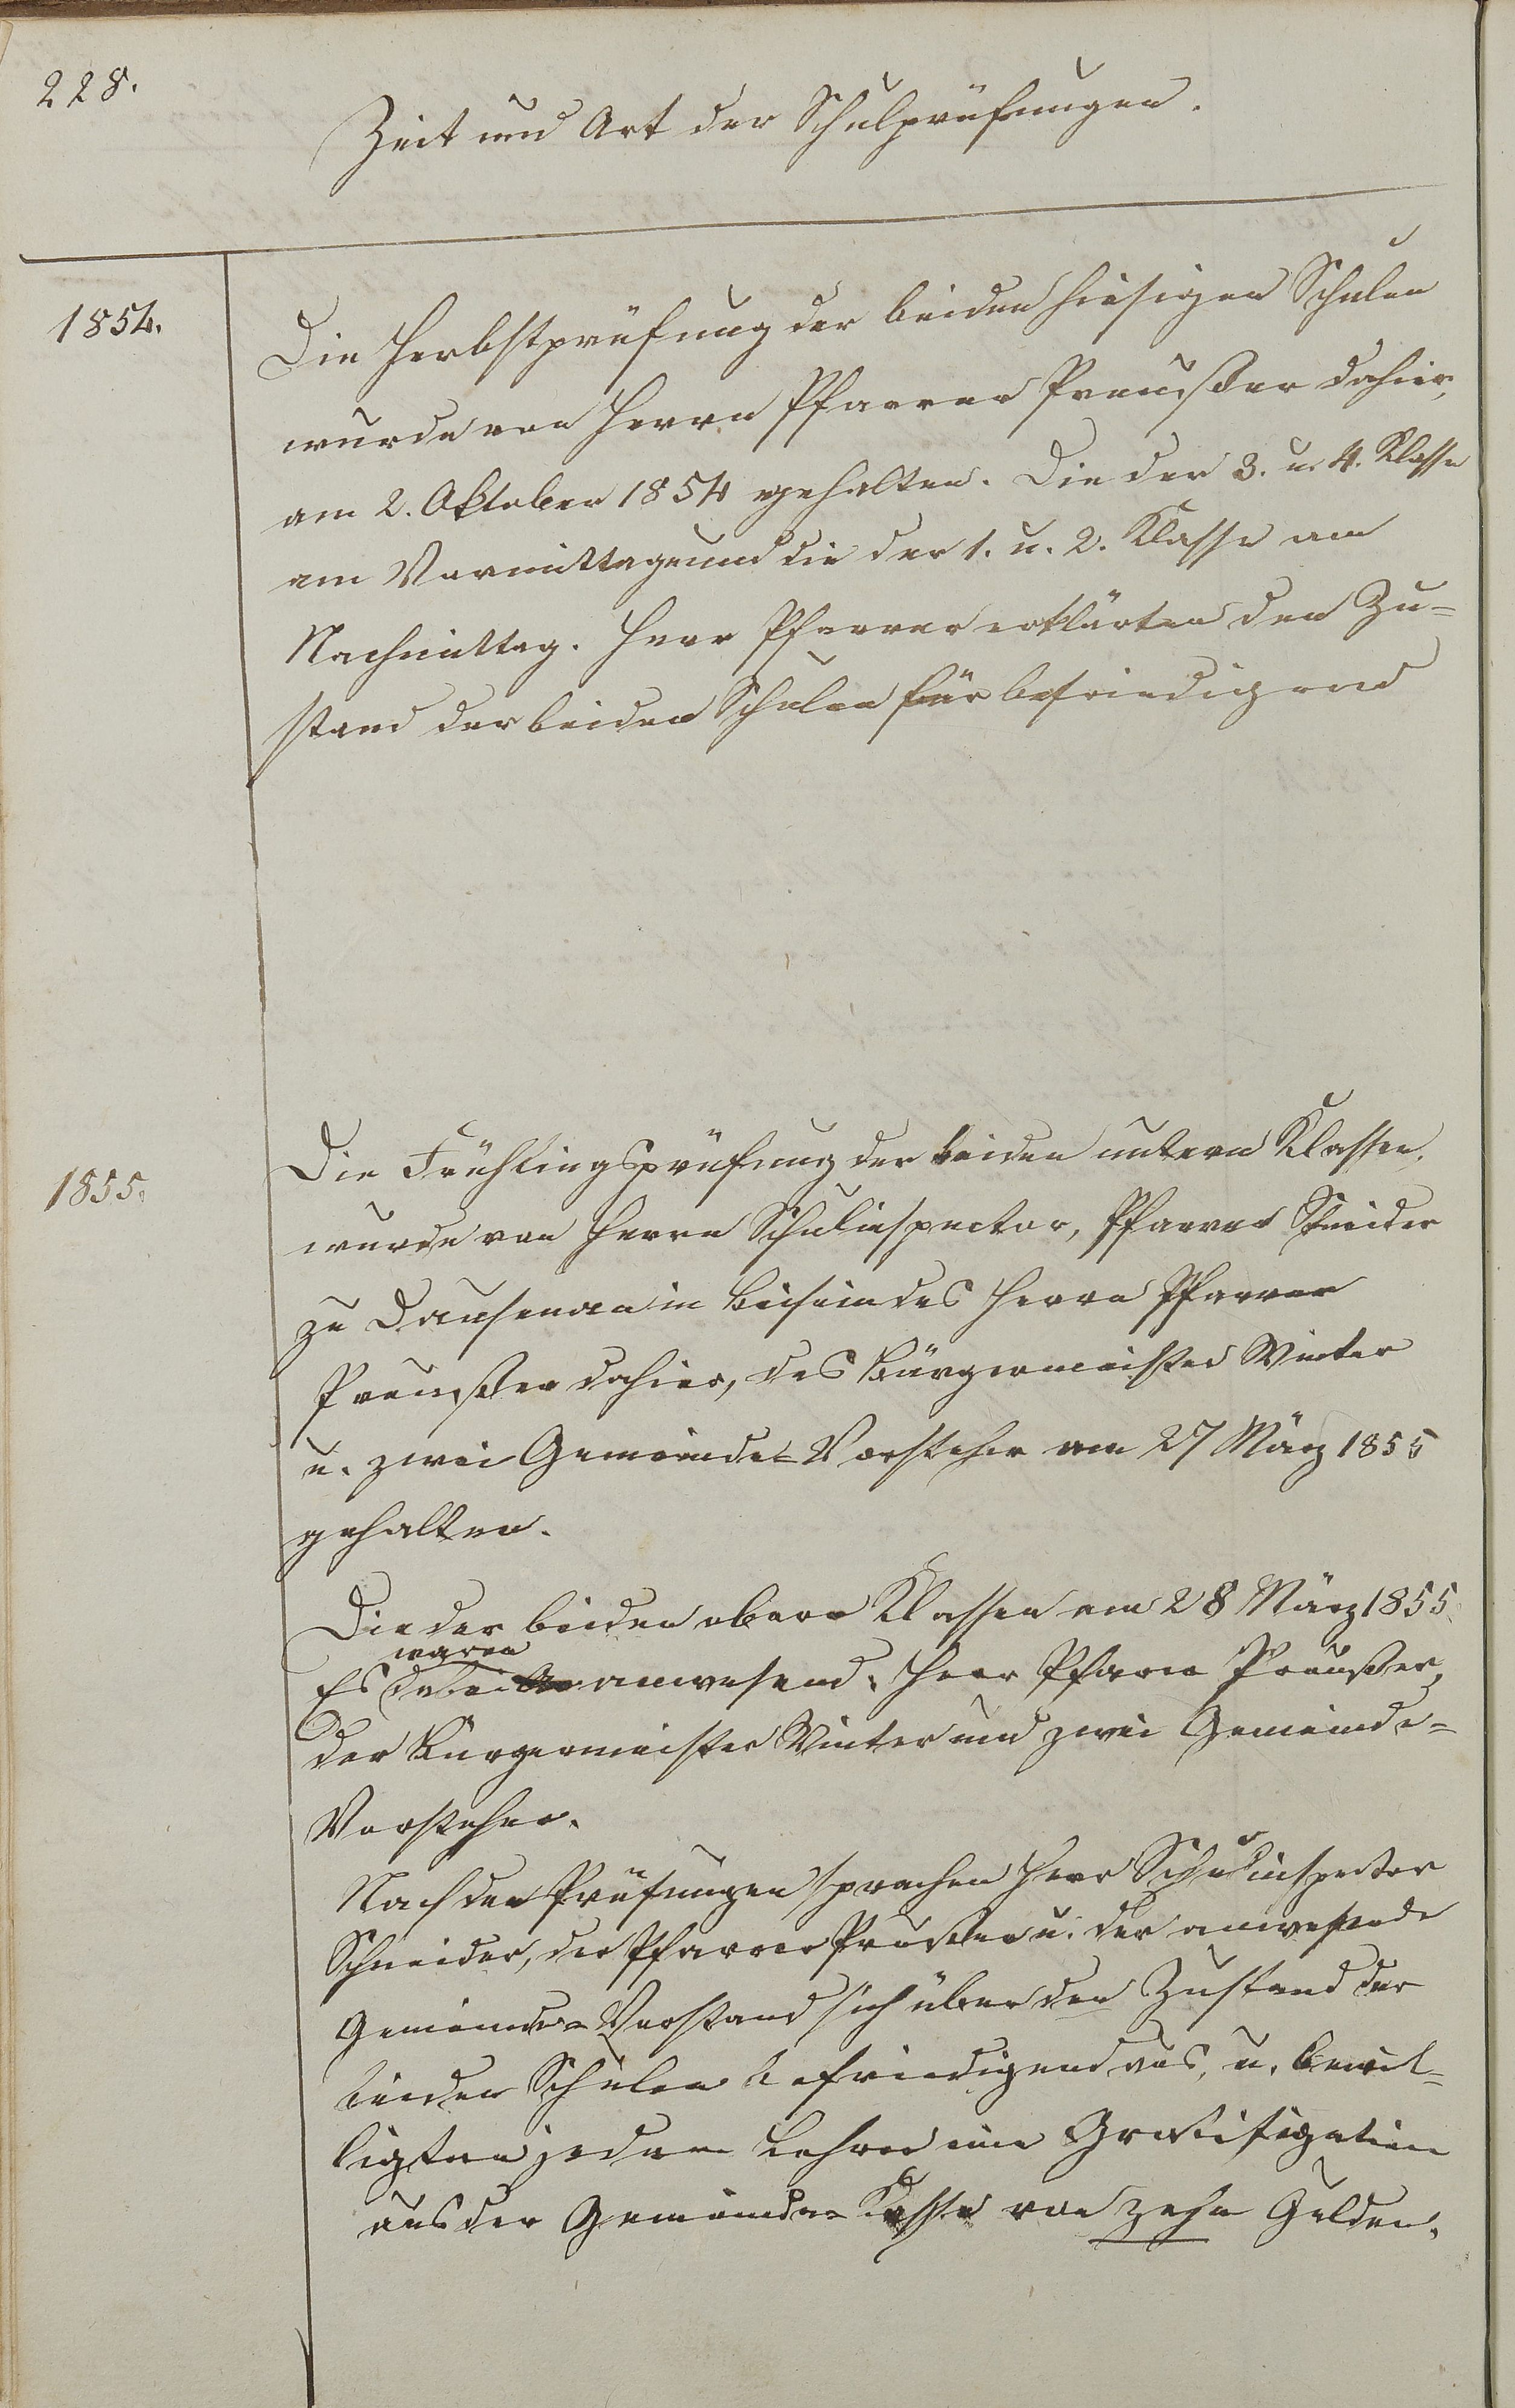 228.
Zeit und Art der Schulprüfungen.
1854.
Die Herbstprüfung der beiden hiesigen Schulen
wurde von Herrn Pfarrer Preußer dahier,
am 2. Oktober 1854 gehalten. Die der 3. u. 4. Klasse
am Vormittag und die der 1. u. 2. Klasse am
Nachmittag. Herr Pfarrer erklärten den Zu-
stand der beiden Schulen für befriedigend
1855.
Die Frühlingsprüfung der beiden untern Klassen,
wurde von Herrn Schulinspector, Pfarrer Schneider
zu Dausenau in Beisein des Herrn Pfarrer
Preußer dahier, des Bürgermeister Winter
u. zwei Gemeinde-Vorsteher am 27 März 1855
gehalten.
Die der beiden obern Klassen am 28 März 1855.
waren
Es dabei anwesend: Herr Pfarrer Preußer,
der Bürgermeister Winter und zwei Gemeinde-
Vorsteher.
Nach den Prüfungen sprachen Herr Schulinspector
Schneider, der Pfarrer Preußer u. der anwesende
Gemeinde-Vorstand sich über den Zustand der
beiden Schulen befriedigend aus, u. bewil-
ligten jedem Lehrer eine Gratifigation
aus der Gemeinde-Kasse von zehn Gulden.